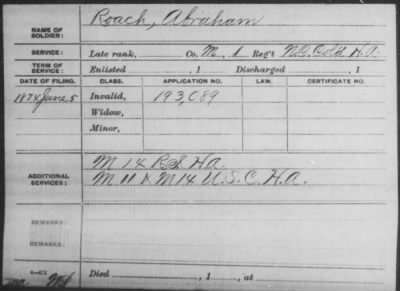 NAME OF SOLDIER: Roach, Abraham
SERVICE: Late rank, Co. M, 1 Reg't N.C. Col'd H.A.
TERM OF SERVICE: Enlisted , 1 Discharged , 1
DATE OF FILING. CLASS. APPLICATION NO. LAW. CERTIFICATE NO.
1874 June 5 Invalid, 193,089
Widow,
Minor,
ADDITIONAL SERVICES: M 14 H.A.
M 11 & M 14 U.S.C.H.A.
REMARKS:
REMARKS:
Died , 1 , at